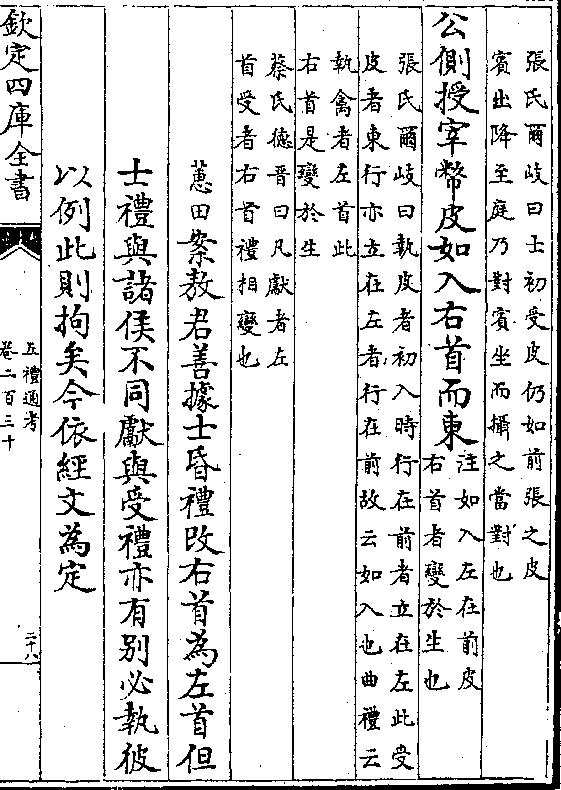 張氏爾岐曰士初受皮仍如前張之皮
賓出降至庭乃對賓坐而攝之當對也
公側授宰幣皮如入右首而東
注如入左在前皮
右首者變於生也
張氏爾岐曰執皮者初入時行在前者立在左此受
皮者東行亦立在左者行在前故云如入也曲禮云
執禽者左首此
右首是變於生
蔡氏德晉曰凡獻者左
首受者右首禮相變也
蕙田案敖君善據士昏禮改右首為左首但
士禮與諸侯不同獻與受禮亦有別必執彼
以例此則拘矣今依經文為定
欽定四庫全書
五禮通考
卷二百三十
二十八